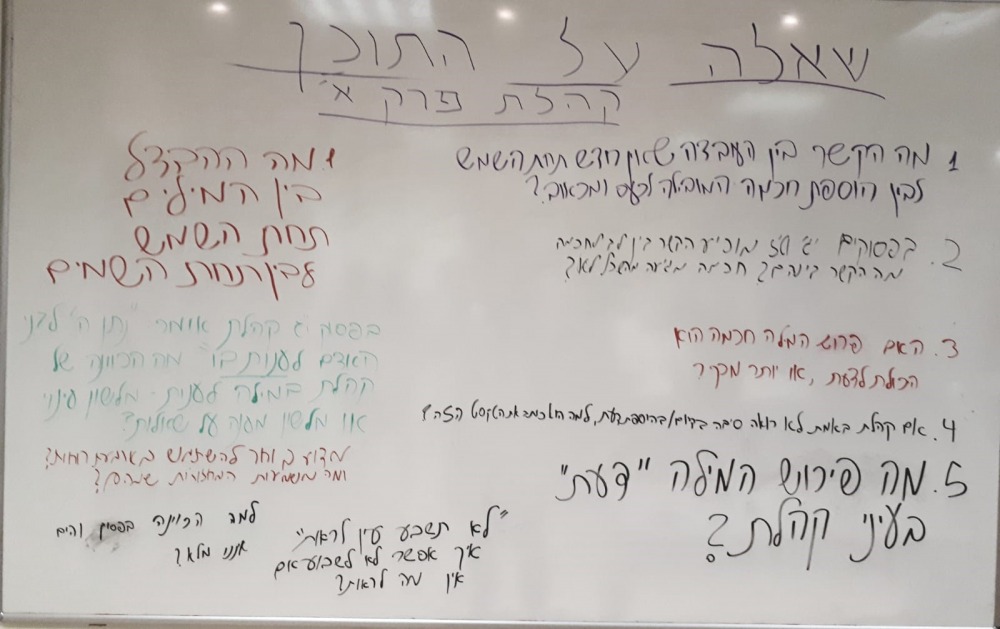 שאלה על התוכן
קהלת פרק א'
1 מה הקשר בין העובדיה שאין חדש תחת השמש
לבין הוספת חכמה המובילה לכעס ומכאוב?
2. בפסוקים יג' מופיע הקשר בין לב לחכמה
מה הקשר ביניהם? חכמה מגיעה מהשכל לא?
3. האם פרוש המלה חכמה הוא
היכולת לדעת, או יותר מקיר
4. אם קהלת באמת לא רואה סיבה בקיום/בהוספת דעת, למה הוא כתב את הטקסט הזה?
5. מה פירוש המילה "דעת"
בעיני קהלת?
1. מה ההבדל
בין המילים
תחת השמש
לבין תחת השמים
בפסוק יג קהלת אומר "נתן ה' לבני
האודם לענות בו" מה הכוונה של
קהלת במילה לענות - מלשון עינוי
או מלשון מענה על שאולות?
מדוע בוחר להשתמש בארבעת רוחות?
ומה משמעות המחזוריות שבהם?
"לא תשבע עין לראות"
איך אפשר לא לשבוע אם
אין מה לראות?
למה הכוונה בפסוק והים
אננו מלא?